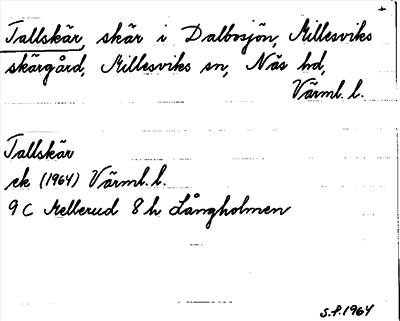 Tallskär, skär i Dalbosjön, Millesviks
skärgård, Millesviks sn, Näs hd,
Värml. l.
Tallskär
ek (1964) Värml. l.
9 C Mellerud 8 h Långholmen
S.P. 1964